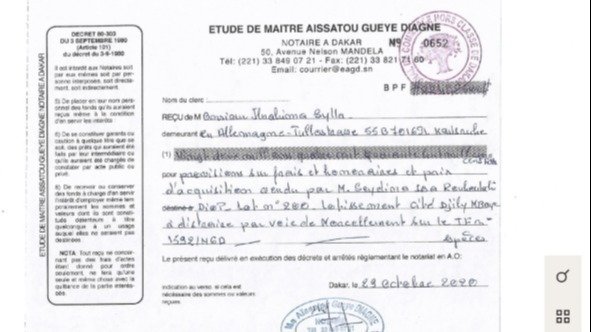 DECRET 80-303
DU 3 SEPTEMBRE 1980
(Article 101)
du décret du 3-9-1980
Il est interdit aux Notaires soit
par eux mêmes soit par per-
sonne interposées, soit directe-
ment, soit indirectement.
5) De placer en leur nom person-
nel des fonds qu'ils auraient
reçus même à la condition
d'en servir les intérêts
6) De se constituer garants ou
caution à quelque titre que ce
soit, des prêts qui auraient été
faits par leur intermédiaire ou
qu'ils auraient été chargés de
constater par acte public ou
privé.
8) De recevoir ou conserver
des fonds à charge d'en servir
l'intérêt d'employer même tem-
porairement les sommes et
valeurs dont ils sont consti-
tués détenteurs à titre
quelconque à un usage
auquel elles ne seraient pas
destinées
NOTA: Tout reçu ne concer-
nant pas des frais d'actes
étant donné pour ordre
seulement, ne fera qu'une
seule et même chose avec la
quittance de la partie intéres-
sée.
ETUDE DE MAITRE AISSATOU GUEYE DIAGNE NOTAIRE A DAKAR
ETUDE DE MAITRE AISSATOU GUEYE DIAGNE
NOTAIRE A DAKAR
50, Avenue Nelson MANDELA
Tél: (221) 33 849 07 21 - Fax: (221) 33 821 71 60
Email: courrier@eagd.sn
Nº 0652
B P F
Nom du clerc
REÇU DE Monsieur Ibrahima Sylla
demeurant en Allemagne-Tullastrasse 55B 76131 Karlsruhe
(1)
pour provisions sur frais et honoraires et prix
d'acquisition vendu par M. Seydina
Diop Lot nº 200. Lotissement Cité Djily Mbaye
à distraire par voie de Morcellement sur le T.F nº
1592/NGD
Espèces
Le présent reçu délivré en exécution des décrets et arrêtés réglementant le notariat en A.O:
Indication au verso, si cela est
nécessaire des sommes ou valeurs
reçues.
Dakar, le 29 Octobre 2020
Me Aissatou GUEYE DIAGNE
NOTAIRE